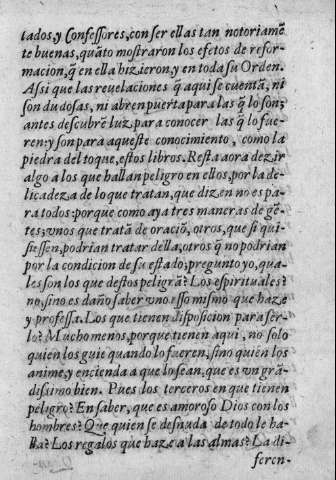 tados, y Confessores, con ser ellas tan notoriamẽ
te buenas, quãto mostraron los efetos de refor-
macion, q̃ en ella hizieron, y en toda su Orden.
Assi que las reuelaciones q̃ aqui se cuentã, ni
son dudosas, ni abren puerta para las q̃ lo son;
antes descubrẽ luz, para conocer las q̃ lo fue-
ren: y son para aqueste conocimiento, como la
piedra del toque, estos libros. Resta aora dezir
algo a los que hallan peligro en ellos, por la de-
licadeza de lo que tratan, que dizen no es pa-
ra todos: porque como aya tres maneras de gẽ-
tes; vnos que tratã de oraciõ, otros, que si qui-
siessen, podrian tratar della, otros q̃ no podrian
por la condicion de su estado; pregunto yo, qua-
les son los que destos peligrã? Los espirituales?
no, sino es daño saber vno esso mismo que haze
y professa. Los que tienen disposicion para ser-
lo? Mucho menos, porque tienen aqui, no solo
quien los guie quando lo fueren, sino quien los
anime, y encienda a que lo sean, que es vn grã-
disimo bien. Pues los terceros en que tienen
peligro? En saber, que es amoroso Dios con los
hombres? Que quien se desnuda de todo le ha-
lla? Los regalos que haze a las almas? La di-
feren-